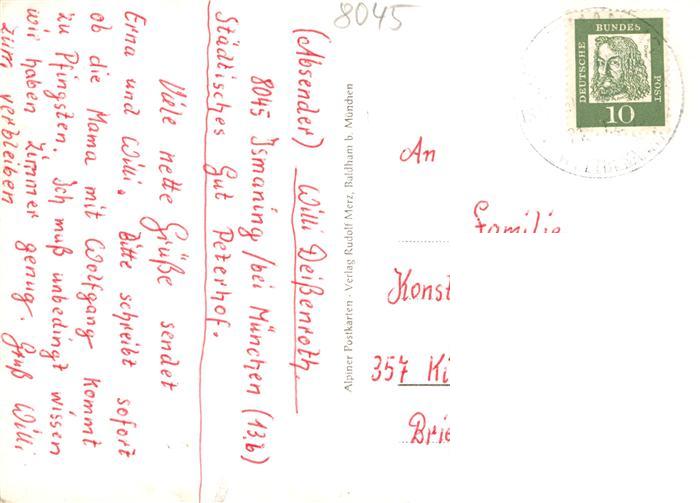 8045
(Absender) Willi Deißenroth
8045 Ismaning/bei München (13b)
Städtisches Gut Peterhof.
Viele nette Grüße sendet
Erna und Willi. Bitte schreibt sofort
ob die Mama mit Wolfgang kommt
zu Pfingsten. Ich muß unbedingt wissen
wir haben Zimmer genug. Gruß Willi
zum verbleiben
Alpiner Postkarten · Verlag Rudolf Merz, Baldham b. München
DEUTSCHE BUNDES POST
10
An
Familie
Konst
357 Ki
Brie